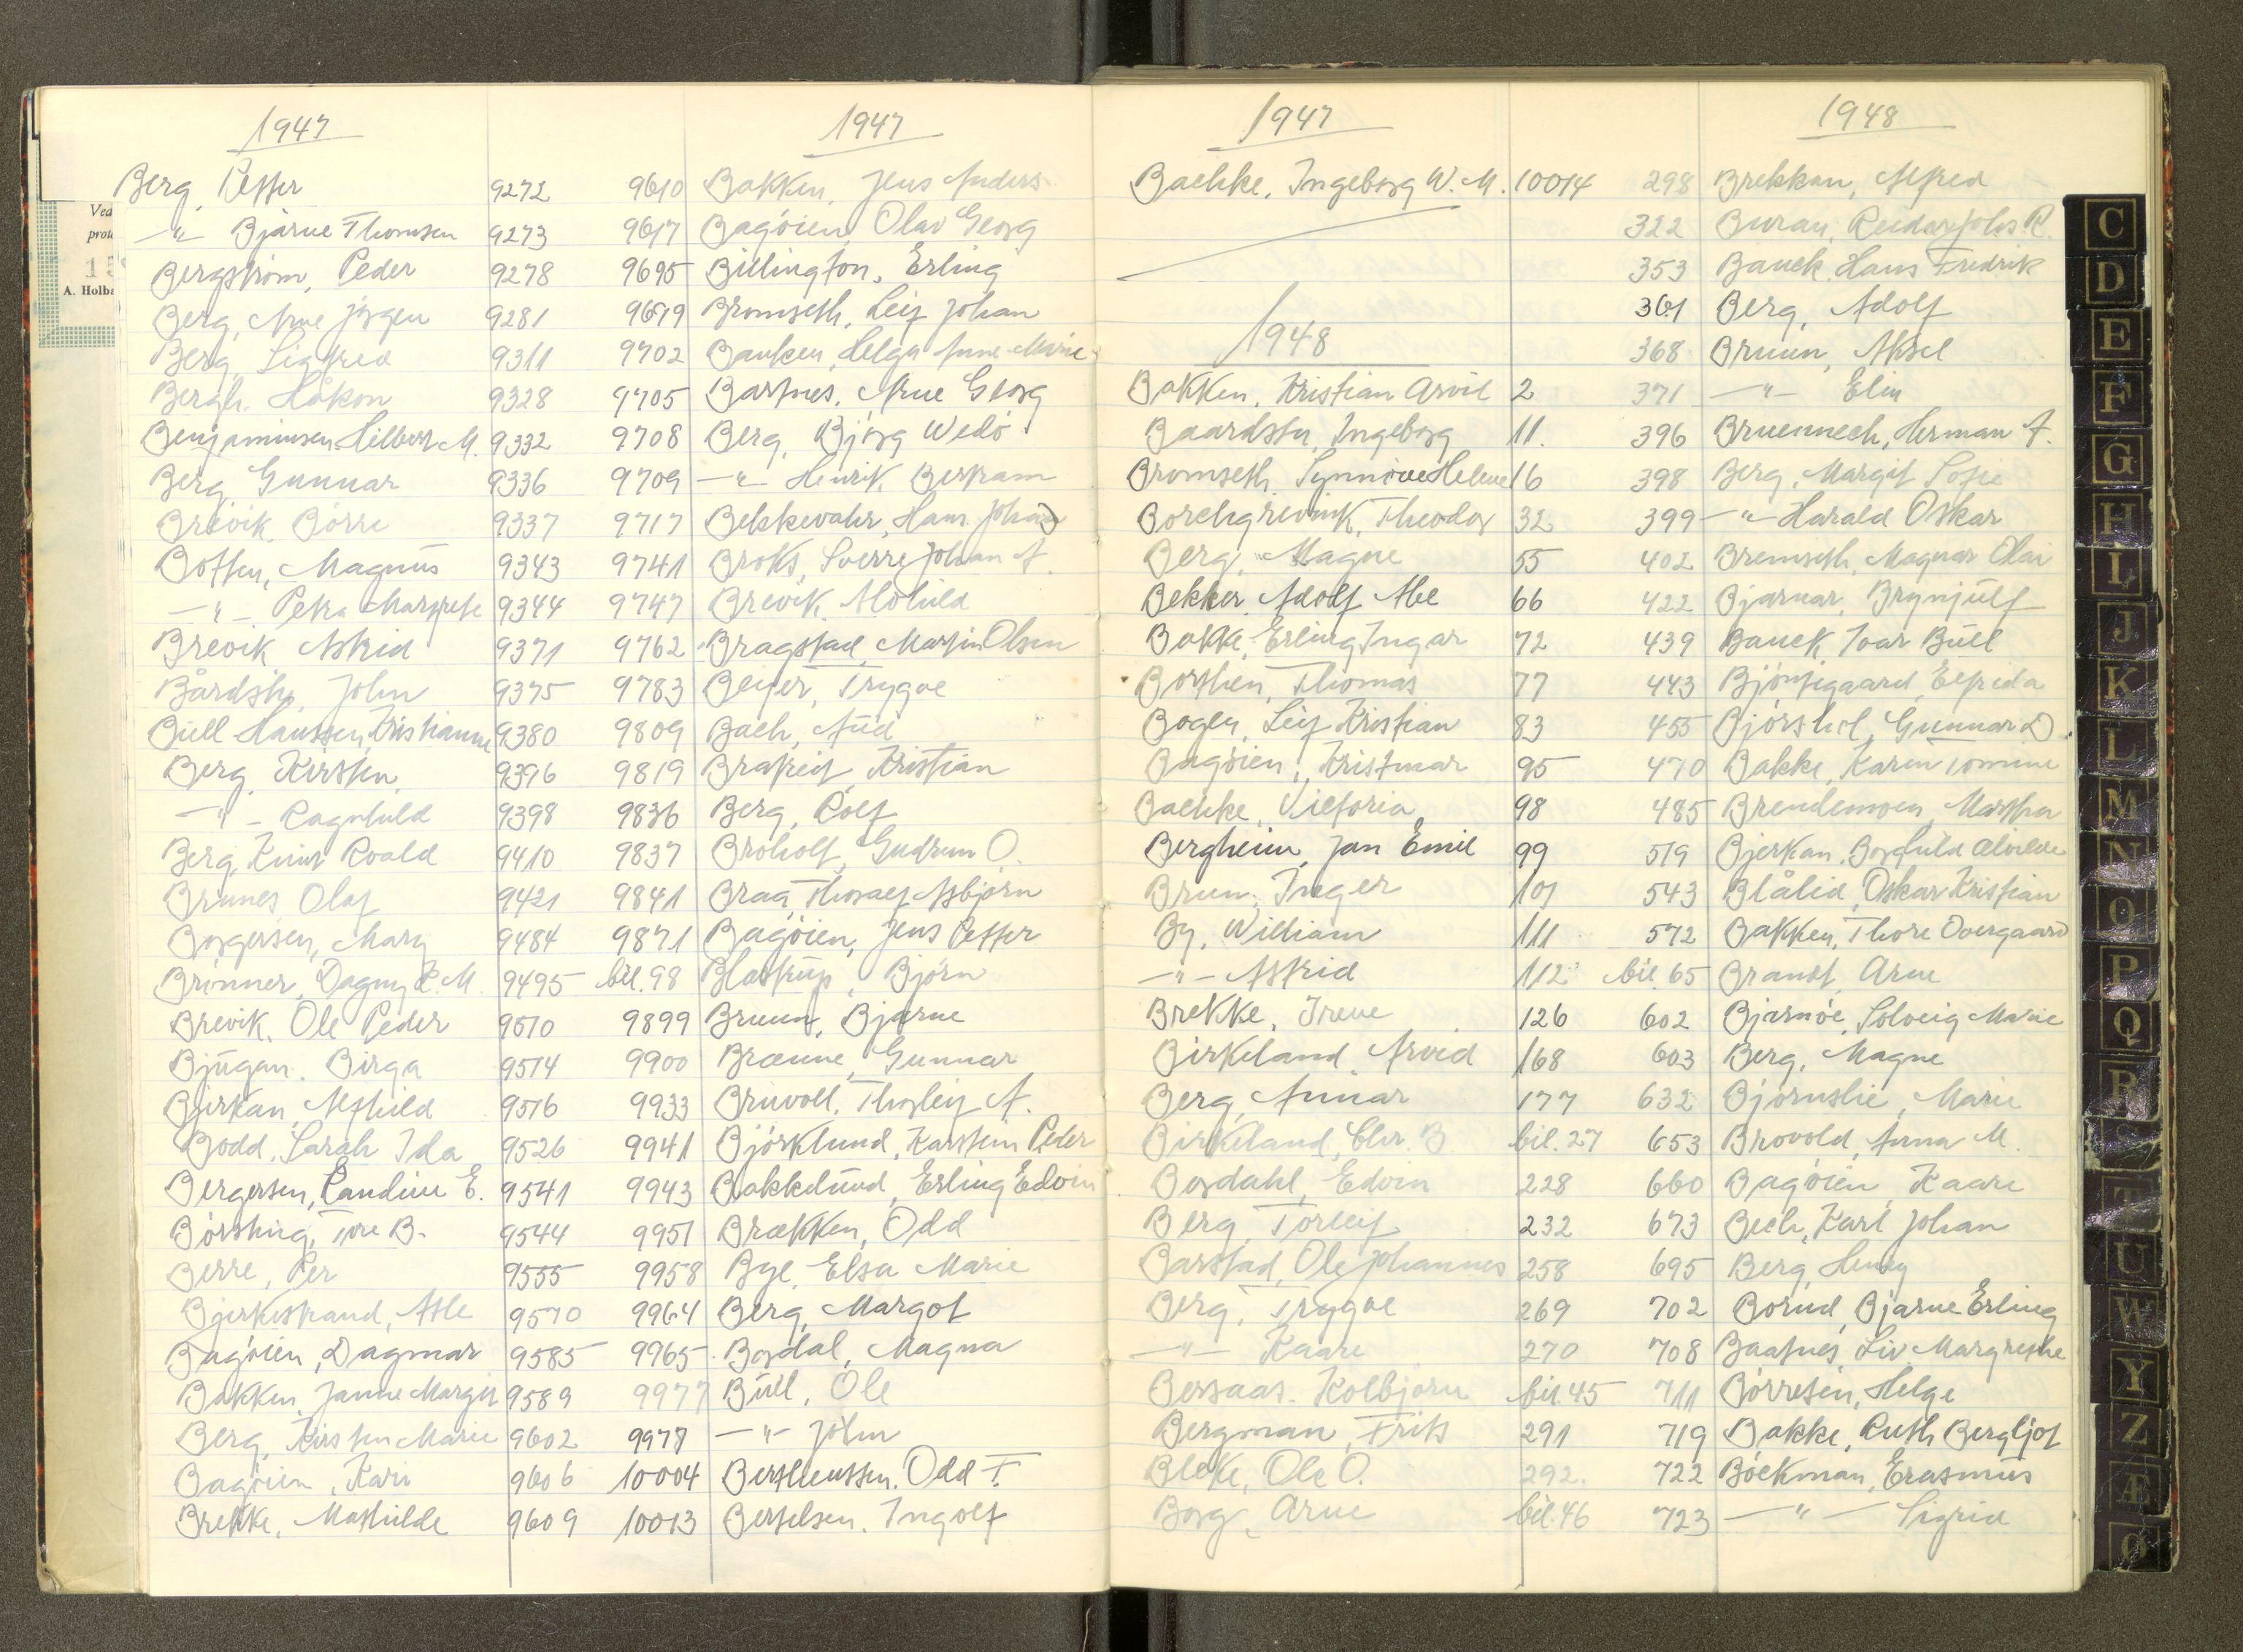 1947
Berg, Petter 9272
—"— Bjarne Thomsen 9273
Bergstrøm, Peder 9278
Berg, Arne Jørgen 9281
Berg, Sigfred 9311
Bergh. Håkon 9328
Benjaminsen, Hilbert M. 9332
Berg, Gunnar 9336
Brevik, Børre 9337
Botten, Magnus 9343
—"— Petra Margrete 9344
Brevik Astrid 9371
Bårdsby, John 9375
Bull Hanssen, Kristianne 9380
Berg, Kirsten, 9396
—"— Ragnhild 9398
Berg, Knut Roald 9410
Brunes, Olaf 9421
Borgersen, Mary 9484
Brønner, Dagny K. M. 9495
Brevik, Ole Peder 9510
Bjugan, Birga 9514
Bjerkan, Alfhild 9516
Bodd, Sarah Ida 9526
Bergersen, Pauline E. 9541
Børsting, Tore B. 9544
Berre, Per 9555
Bjerkestrand, Atle 9570
Bagøien, Dagmar 9585
Bakken, Janne Margit 9589
Berg, Kirsten Marie 9602
Bagøien, Kari 9606
Brekke, Mathilde 9609
1947
9610 Bakken, Jens Anders
9617 Bagøien, Olav Georg
9695 Billington, Erling
9699 Bromseth, Leif Johan
9702 Banken, Helga Anne-Marie
9705 Bartnes, Arne Georg
9708 Berg, Bjørg Wedø
9709 —"— Henrik Bertram
9717 Bekkevahr, Hans Johan
9741 Broks, Sverre Johan A.
9747 Brevik, Alvhild
9762 Bragstad, Martin Olsen
9783 Beyer, Trygve
9809 Bach, Aud
9819 Brakeit, Kristian
9836 Berg, Rolf
9837 Broholt, Gudrun O.
9841 Braa, Thoralf Asbjørn
9871 Bagøien, Jens Petter
bil. 98 Blostrup, Bjørn
9899 Bruun, Bjarne
9900 Brænne, Gunnar
9933 Bruvoll, Thorleif A.
9941 Bjørklund, Karstein Peder
9943 Bakkelund, Erling Edvin
9951 Brækken, Odd
9958 Bye, Elsa Marie
9964 Berg, Margot
9965 Bogdal, Magna
9977 Bull, Ole
9977 —"— John
10004 Berthenssen, Odd F.
10013 Bertelsen, Ingolf
1947
Bachke, Ingeborg W. M. 10014
1948
Bakken, Kristian Arvid 2
Baardsen, Ingeborg 11.
Bromseth, Synnøve Helene 16
Borchgrevink, Theodor 32
Berg, Magne 55
Bekker, Adolf Abel 66
Bakke, Erling Ingar 72
Borthen, Thomas 77
Bogen, Leif Kristian 83
Bagøien, Kristmar 95
Bachke, Viktoria 98
Bergheim, Jan Emil 99
Brun, Inger 101
By, William 111
—"— Astrid 112
Brekke, Irene 126
Birkeland, Arvid 168
Berg, Annar 177
Birkeland, Chr. B. bil. 27
Bordahl, Edvin 228
Berg, Torleif 232
Barstad, Ole Johannes 258
Berg, Trygve 269
—"— Kaare 270
Bersaas, Kolbjørn bil. 45
Bergman, Frits 291
Bleke, Ole O. 292.
Borg, Arne bil. 46
1948
298 Brekkan, Alfred
322 Buran, Reidar Johs R.
353 Bauck, Hans Fredrik
361 Berg, Adolf
368 Bruun, Aksel
371 —"— Elin
396 Bruenech, Herman A.
398 Berg, Margit Sofie
399 —"— Harald Oskar
402 Bremseth, Magnar Olai
422 Bjarnar, Brynjulf
439 Bauck, Ivar Bull
443 Bjøntegaard, Elfrida
455 Bjørshol, Gunnar D.
470 Bakke, Karen Tomine
485 Brendemoen, Martha
519 Bjerkan, Borghild Alvilde
543 Blålid, Oskar Kristian
572 Bakken, Thore Overgaard
bil. 65 Brandt, Arne
602 Bjarnøe, Solveig Marie
603 Berg, Magne
632 Bjørnslie, Marie
653 Brovold, Anna M.
660 Bagøien, Kaare
673 Bech, Karl Johan
695 Berg, Henry
702 Borud, Bjarne Erling
708 Baatnes, Liv Margrethe
711 Børresen, Helge
719 Bakke, Ruth Bergljot
722 Bøckman, Erasmus
723 —"— Sigrid
Ved
prote
15
A. Holba
C
D
E
F
G
H
I
J
K
L
M
N
O
P
Q
R
S
T
U
W
Y
Z
Æ
Ø